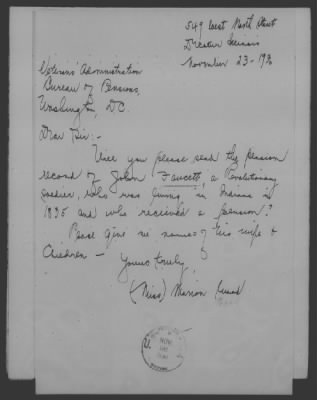 549 West North Street
Decatur Illinois
November 23-193
Veterans' Administration
Bureau of Pensions,
Washington, D.C.
Dear Sir:-
Will you please send the pension
record of John Fawcett, a Revolutionary
soldier, who was living in Indiana in
1835 and who received a pension?
Please give me names of his wife &
Children -
Yours truly,
(Miss) Marion
NOV